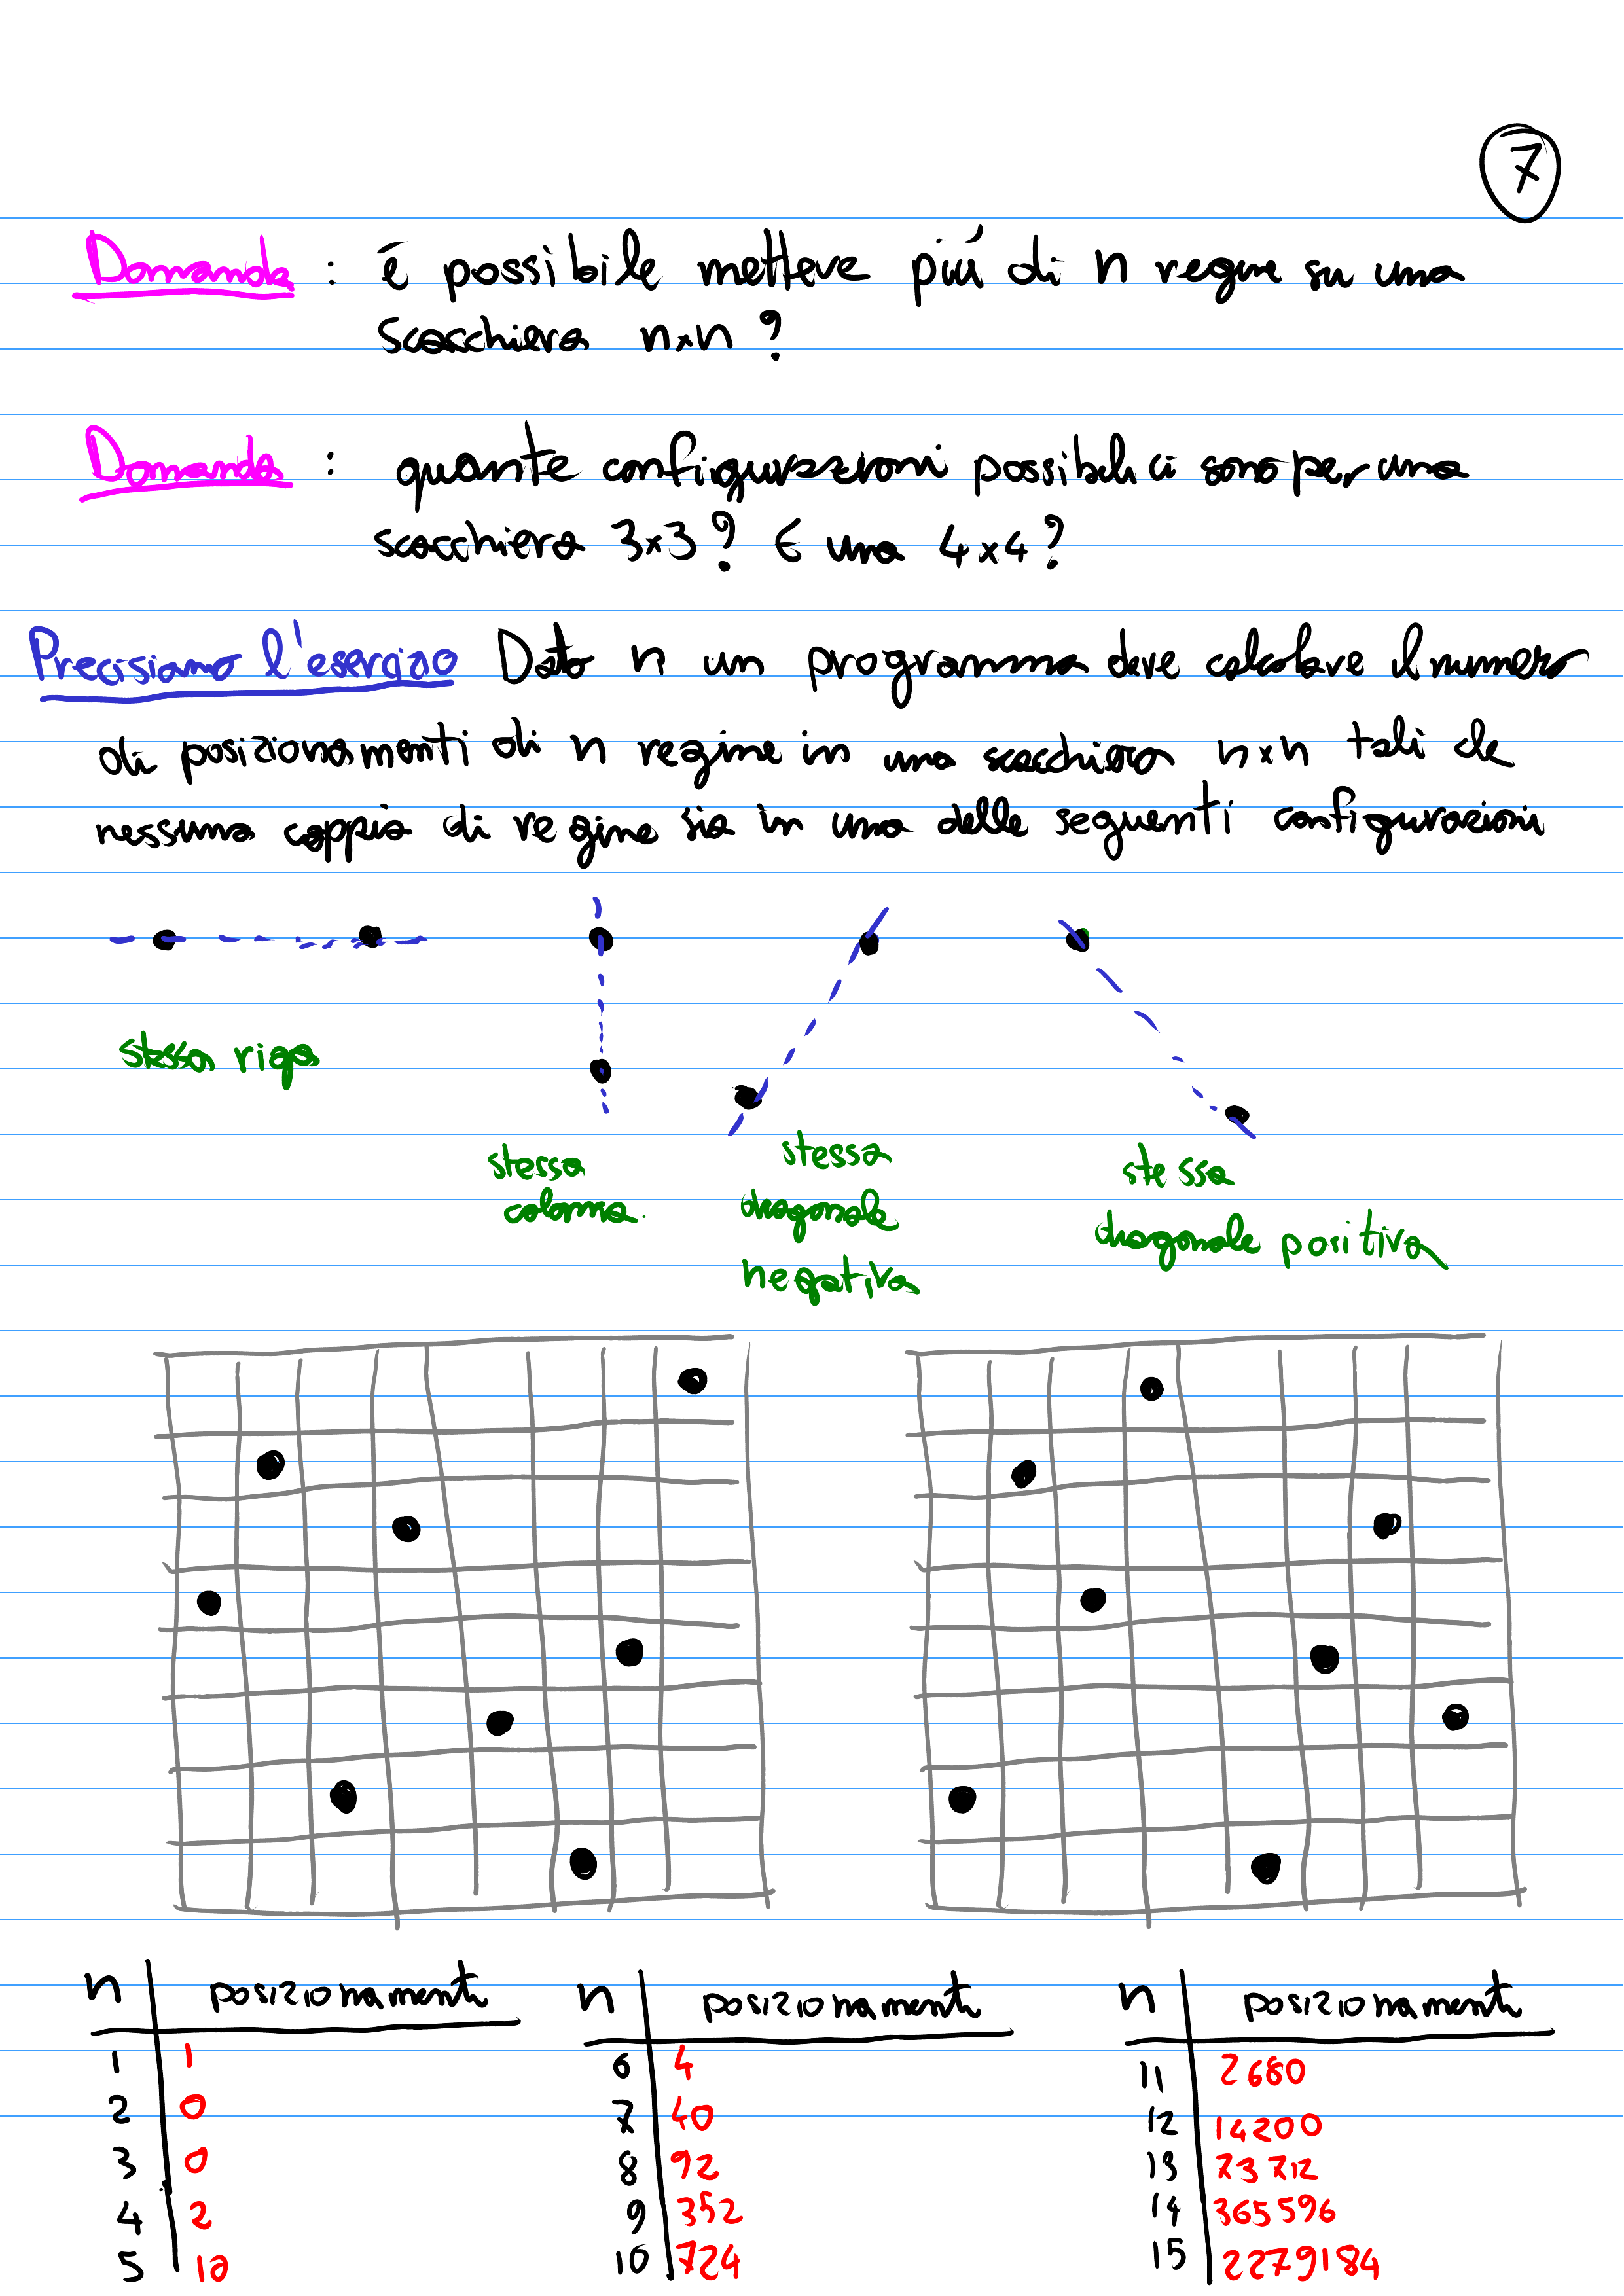 7
Domanda : è possibile mettere più di n regine su una
scacchiera n×n ?
Domanda : quante configurazioni possibili ci sono per una
scacchiera 3×3? E una 4×4?
Precisiamo l'esercizio Dato n un programma deve calcolare il numero
di posizionamenti di n regine in una scacchiera n×n tali che
nessuna coppia di regine sia in una delle seguenti configurazioni
stessa riga
stessa
colonna.
stessa
diagonale
negativa
stessa
diagonale positiva
n posizionamenti
1 1
2 0
3 0
4 2
5 10
n posizionamenti
6 4
7 40
8 92
9 352
10 724
n posizionamenti
11 2680
12 14200
13 73712
14 365596
15 2279184